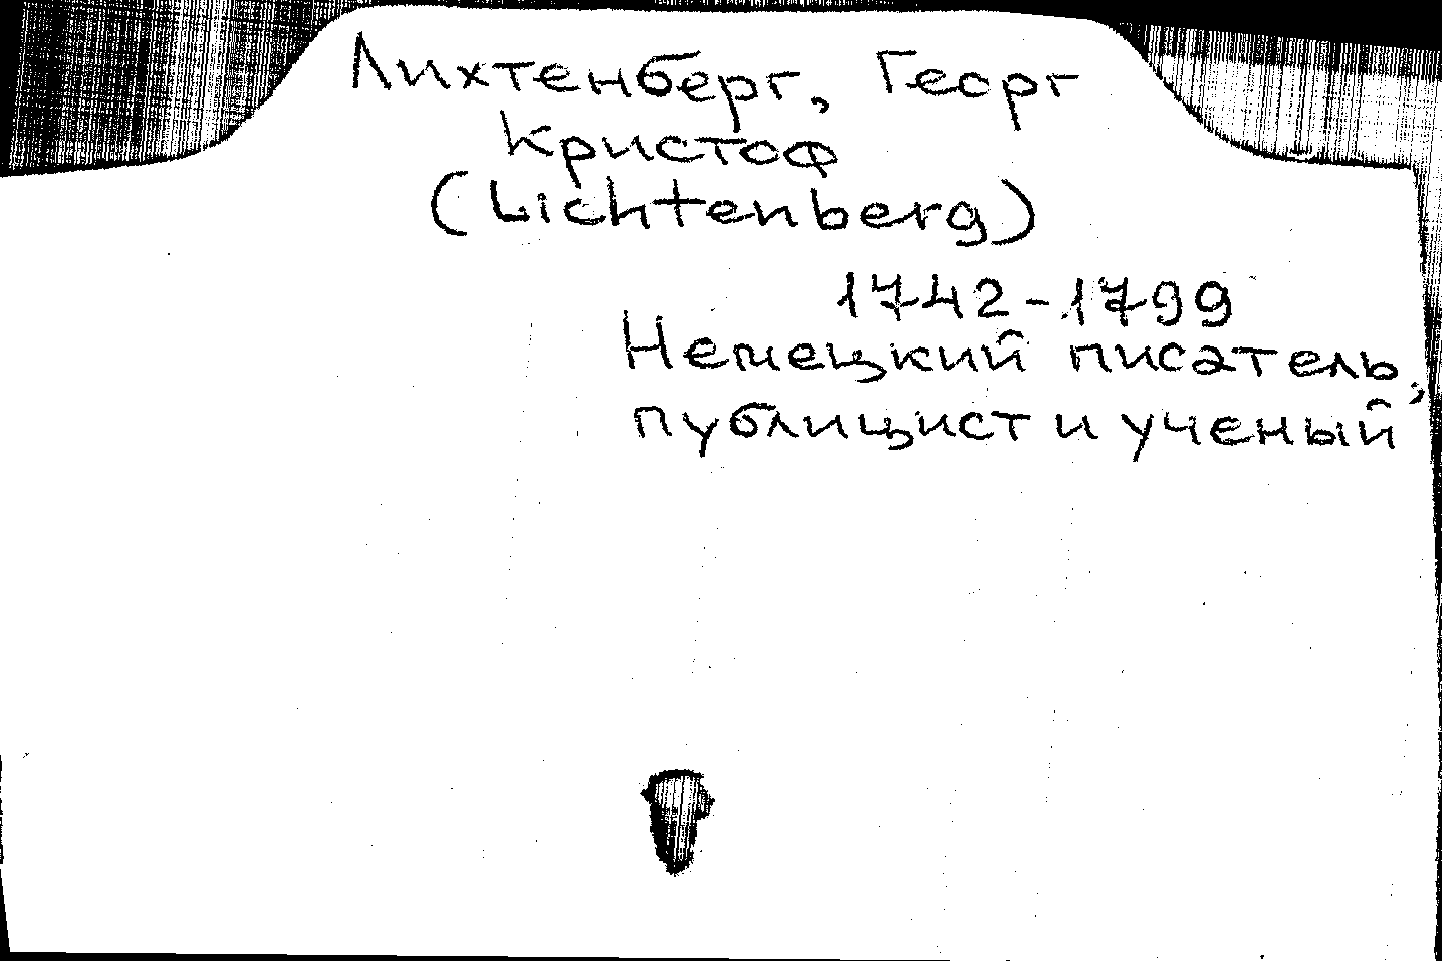 Лихтенберг, Георг
Кристоф
(Lichtenberg)
1742-1799
Немецкий писатель,
публицист и ученый